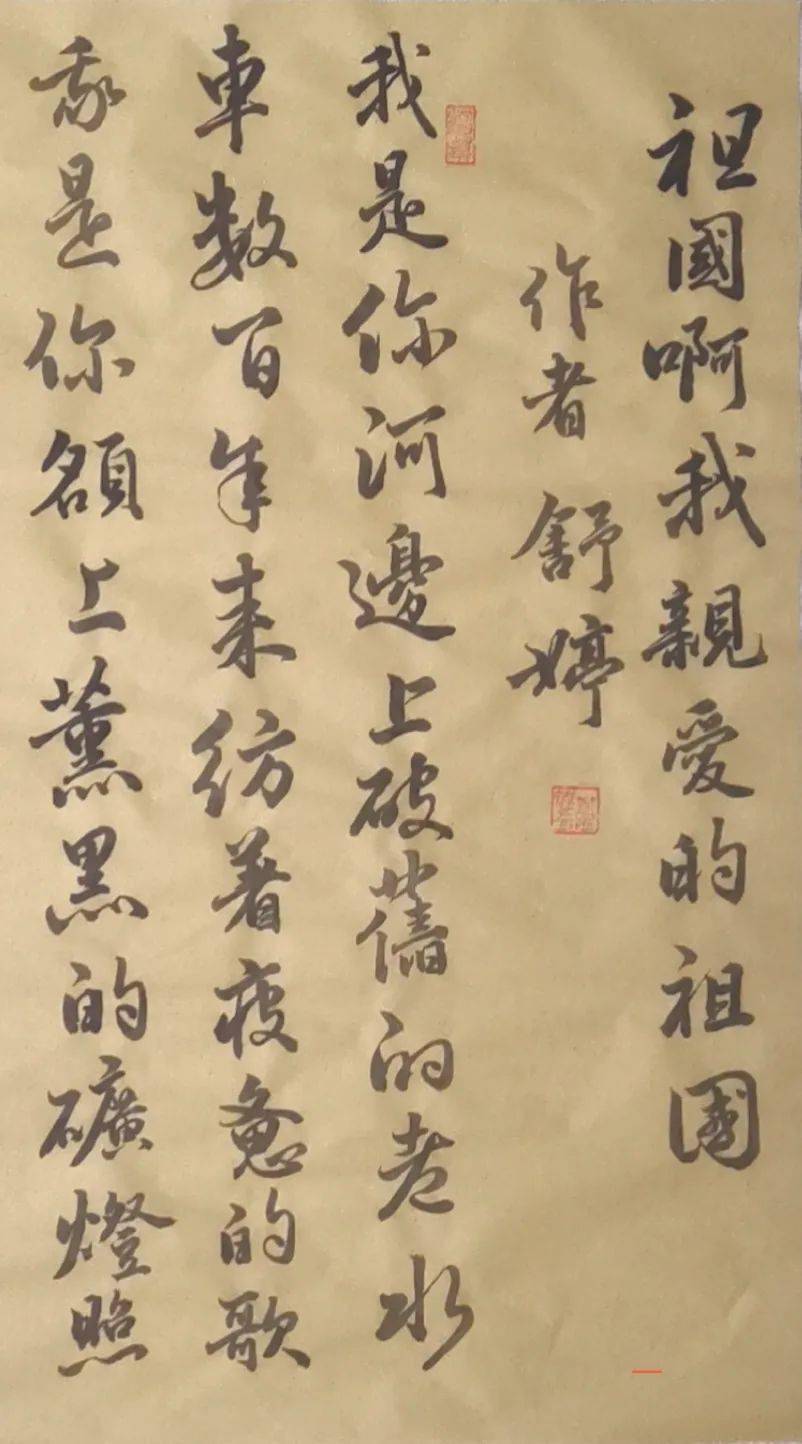 祖國啊我親愛的祖國
作者舒婷
我是你河邊上破舊的老水
車數百年来紡著疲惫的歌
我是你額上薰黑的礦燈照